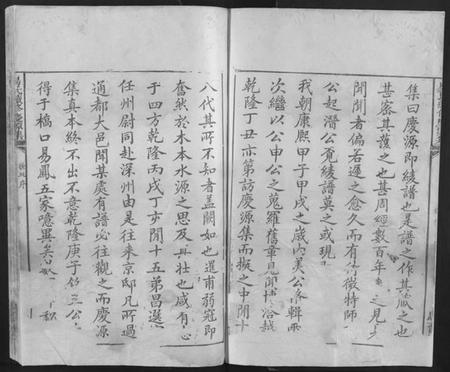 集曰慶源即綾譜也是譜之作其嚴之也
甚密其護之也甚周經數百年之見
聞聞者偏若遲之愈久而有待微特師
公起潛公覔綾譜莫之或現
我朝康熙甲子甲戌之歲内美公輯
次繼以公申公之蒐羅舊章冶越
乾隆丁丑亦第訪慶源集而摭之中閒十
八代其所不知者蓋闕如也道甫弱冠即
奮然於木本水源之思及壯也感有心
于四方乾隆丙戌丁亥閒十五弟昌選
任州尉同赴深州由是往來京邸凡所過
通都大邑聞某處有譜必往觀之而慶源
集真本終不出不意乾隆庚子三公
得于橋口易鳳五家噫異矣